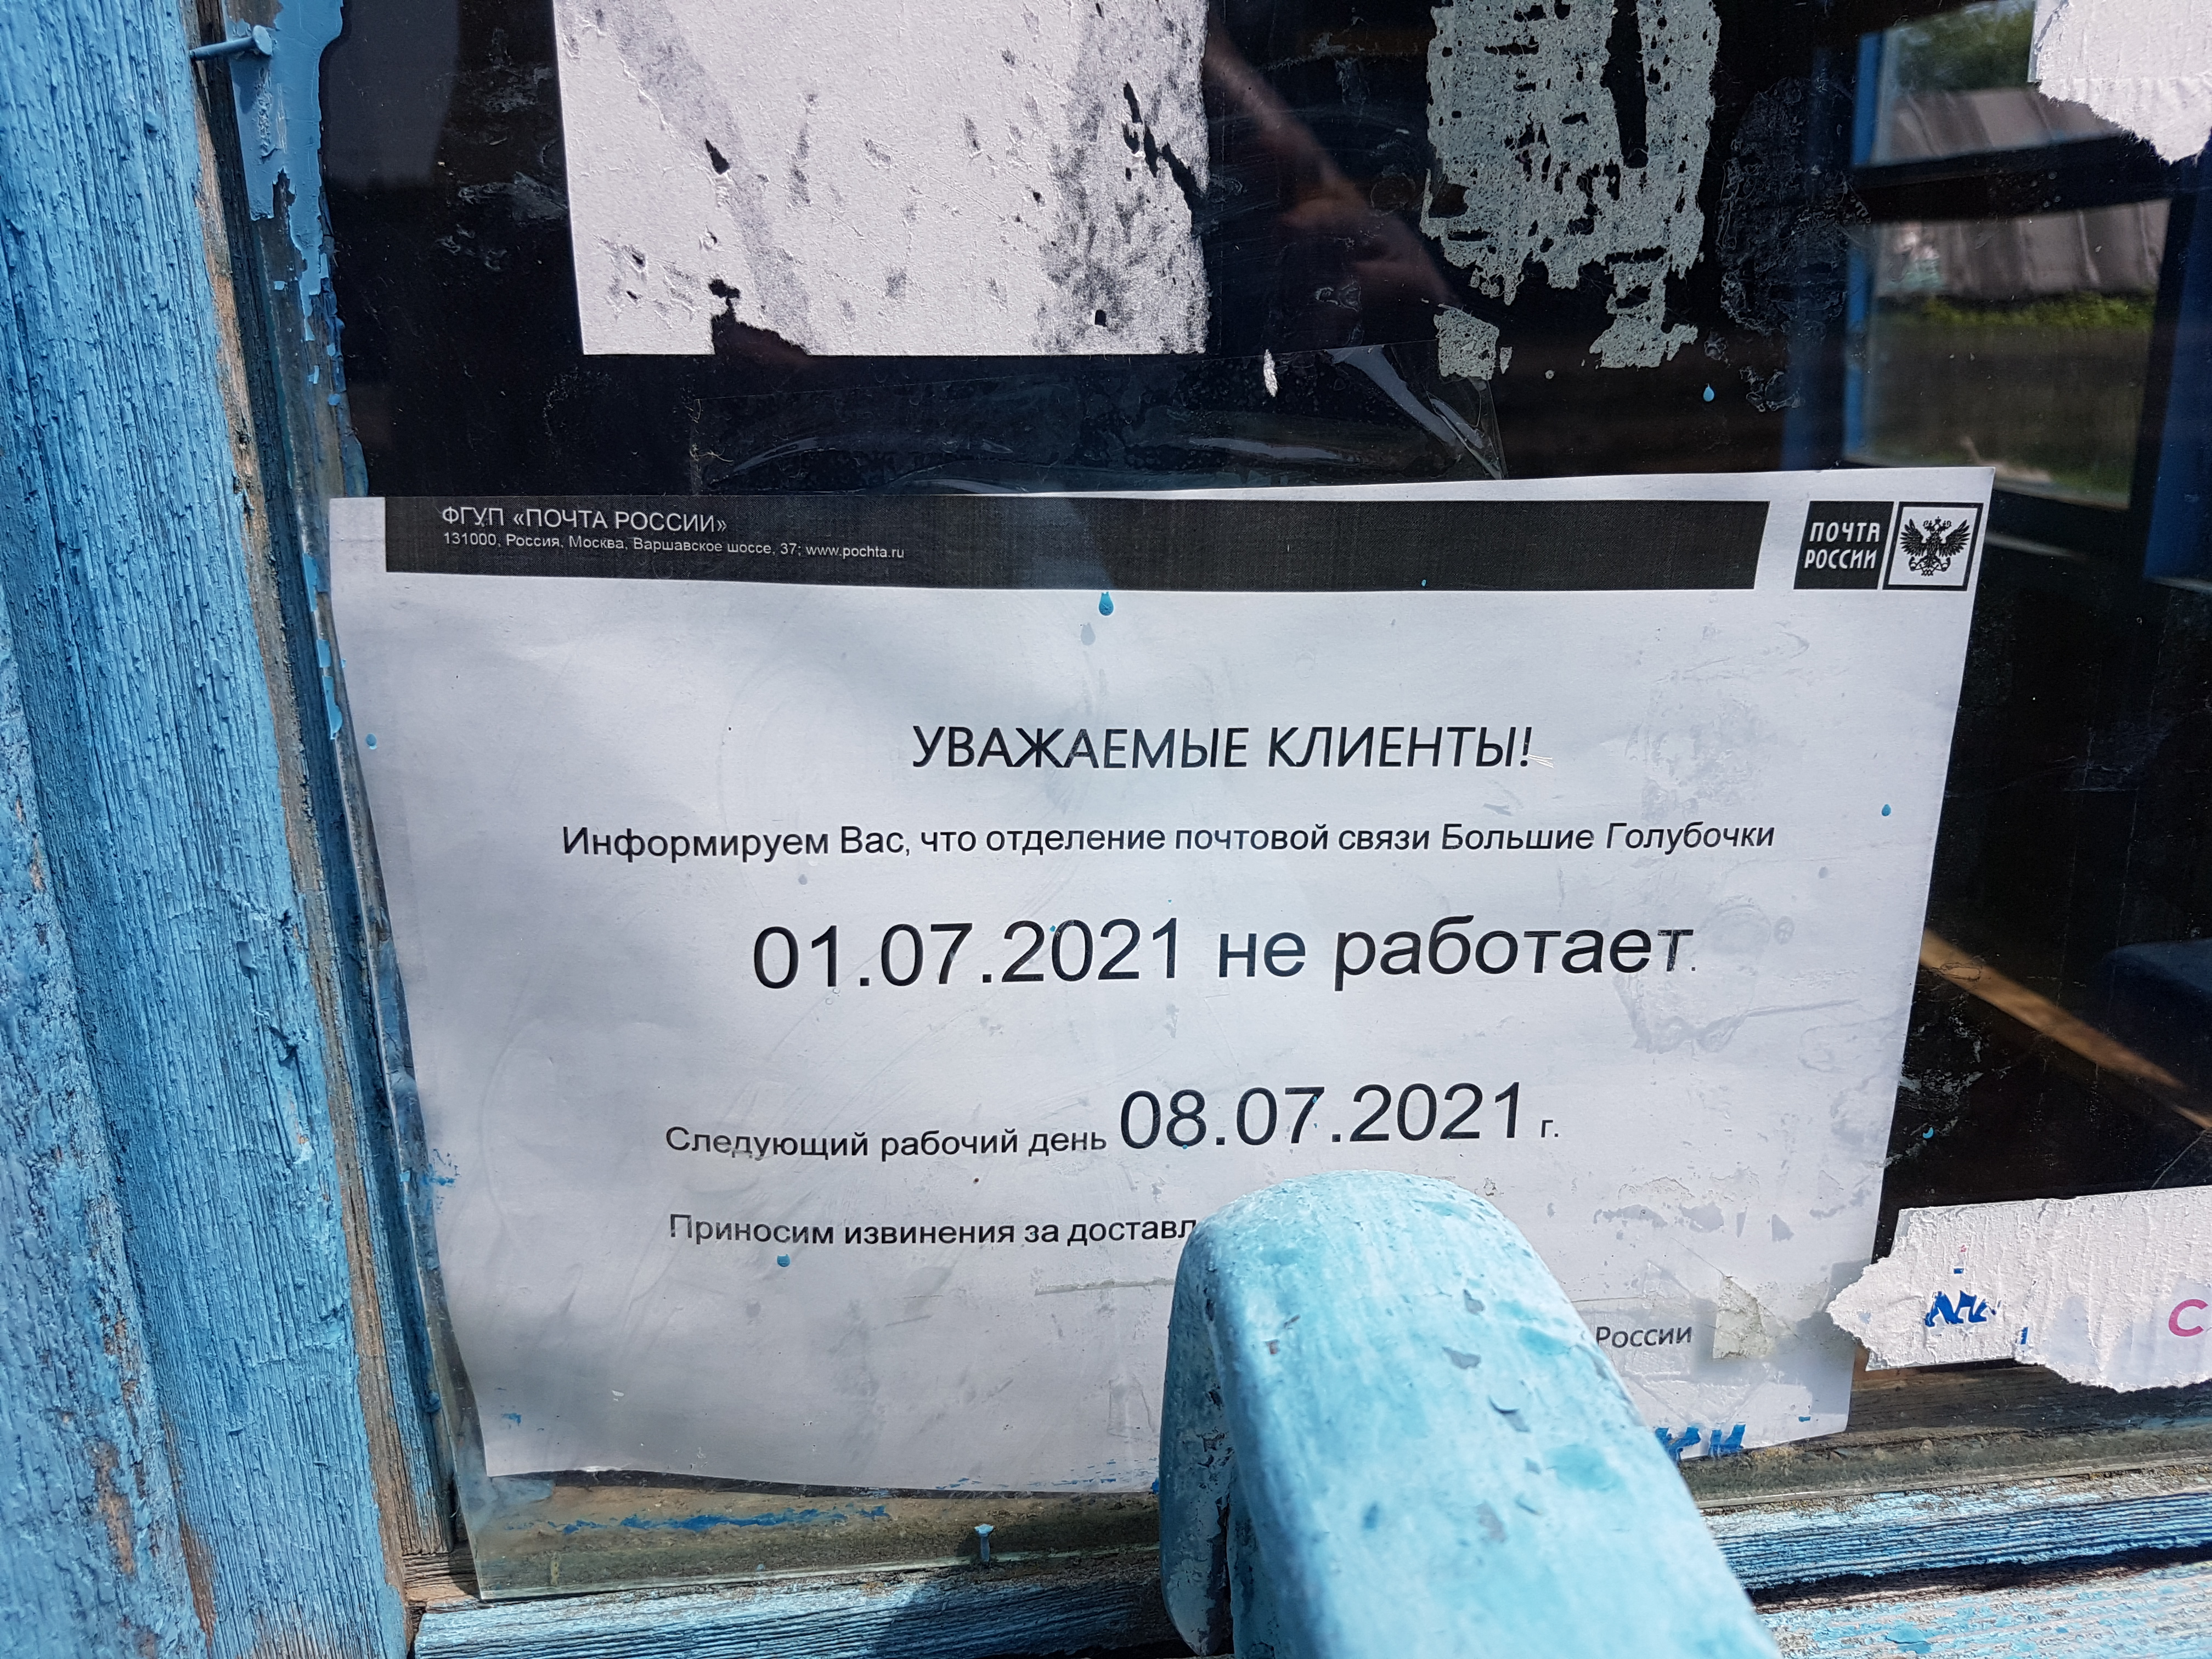 ФГУП «ПОЧТА РОССИИ»
131000, Россия, Москва, Варшавское шоссе, 37; www.pochta.ru
ПОЧТА
РОССИИ
УВАЖАЕМЫЕ КЛИЕНТЫ!
Информируем Вас, что отделение почтовой связи Большие Голубочки
01.07.2021 не работает.
Следующий рабочий день 08.07.2021 г.
Приносим извинения за
России